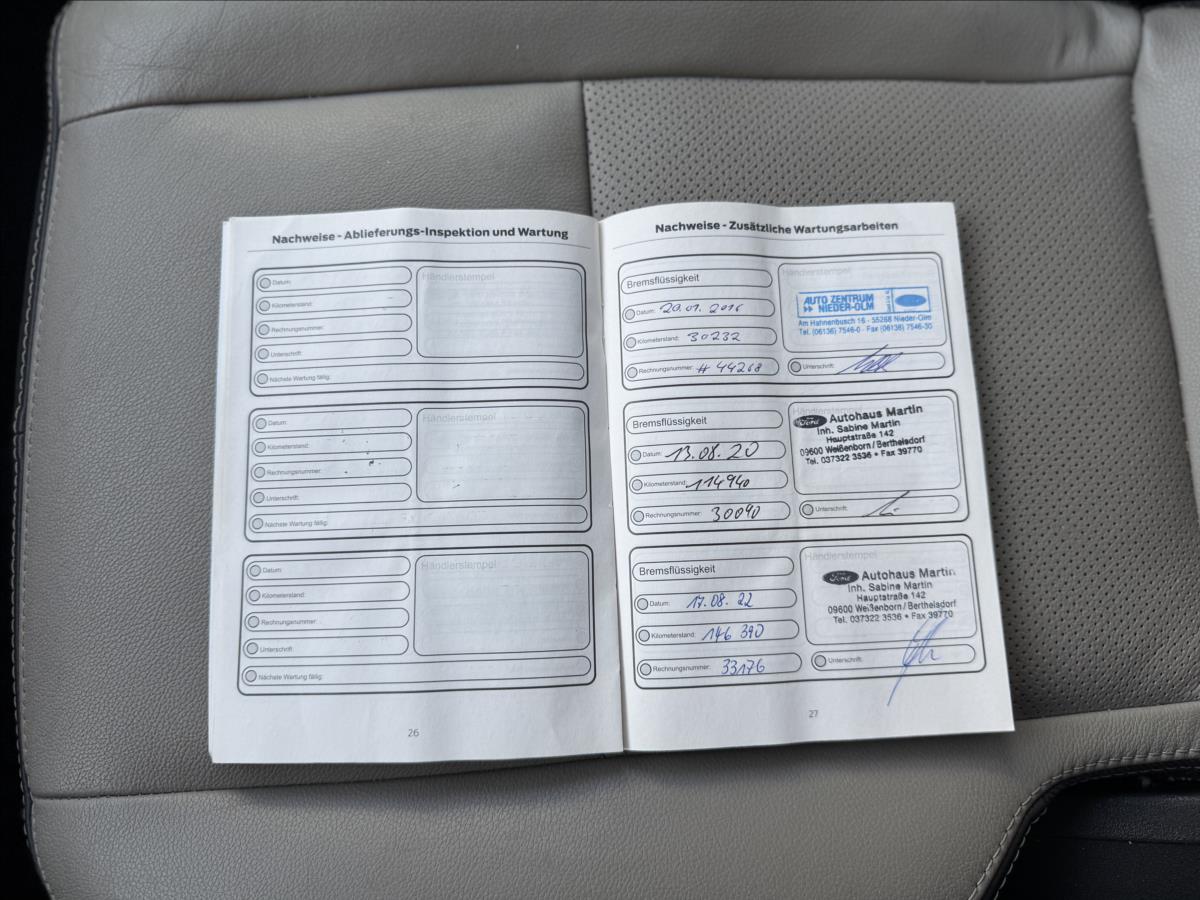 Nachweise - Ablieferungs-Inspektion und Wartung
Datum:
Händlerstempel
Kilometerstand:
Rechnungsnummer:
Unterschrift:
Nächste Wartung fällig:
Datum:
Händlerstempel
Kilometerstand:
Rechnungsnummer:
Unterschrift:
Nächste Wartung fällig:
Datum:
Händlerstempel
Kilometerstand:
Rechnungsnummer:
Unterschrift:
Nächste Wartung fällig:
26
Nachweise - Zusätzliche Wartungsarbeiten
Bremsflüssigkeit
Datum: 20.01. 2016
Kilometerstand: 30232
Rechnungsnummer: # 44268
Händlerstempel
AUTO ZENTRUM
NIEDER-OLM
Am Hahnenbusch 16 - 55268 Nieder-Olm
Tel. (06136) 7546-0 - Fax (06136) 7546-30
Unterschrift:
Bremsflüssigkeit
Datum: 13.08. 20
Kilometerstand: 114940
Rechnungsnummer: 30090
Händlerstempel
Ford Autohaus Martin
Inh. Sabine Martin
Hauptstraße 142
09600 Weißenborn / Berthelsdorf
Tel. 037322 3536 • Fax 39770
Unterschrift:
Bremsflüssigkeit
Datum: 17.08. 22
Kilometerstand: 146 390
Rechnungsnummer: 33176
Händlerstempel
Ford Autohaus Martin
Inh. Sabine Martin
Hauptstraße 142
09600 Weißenborn / Berthelsdorf
Tel. 037322 3536 • Fax 39770
Unterschrift:
27